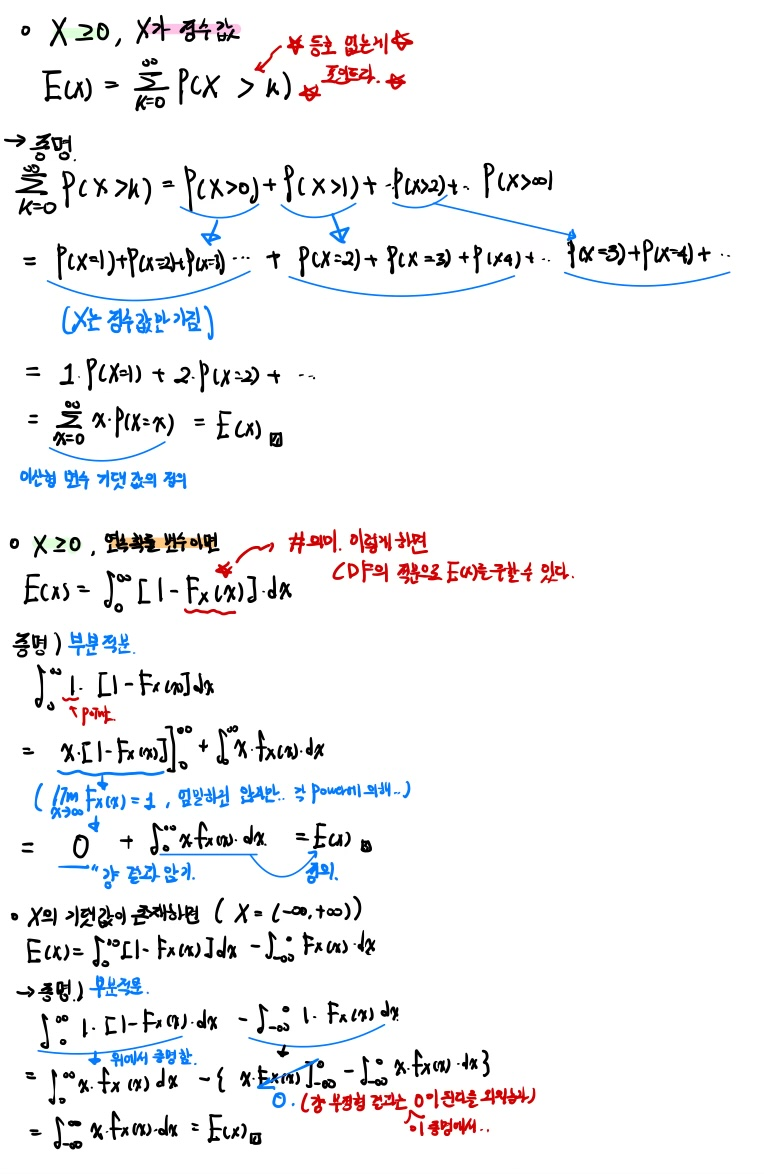 o X ≥0, X가 정수값
E(X) = ∑_{K=0}^{∞} P(X > k) ☆ 등호 없는게 ☆ ☆ 포인트다. ☆
→ 증명.
∑_{K=0}^{∞} P(X>k) = P(X>0) + P(X>1) + P(X>2) + .. P(X>∞)
= P(X=1)+P(X=2)+P(X=3) ... + P(X=2) + P(X=3) + P(X4) + .. P(X=3)+P(X=4)+ ..
(X는 정수값만 가짐)
= 1·P(X=1) + 2·P(X=2) + ...
= ∑_{x=0}^{∞} x·P(X=x) = E(X)
이산형 변수 기댓값의 정의
o X ≥0, 연속확률 변수이면
E(X) = ∫_0^∞ [1-F_X(x)]·dx ☆ #의미. 이렇게 하면
CDF의 적분으로 E(X)를 구할 수 있다.
증명) 부분적분.
∫_0^∞ 1· [1-F_X(x)]dx
↑ point.
= x·[1-F_X(x)]]_0^∞ + ∫_0^∞ x·f_X(x)·dx
(lim_{x→∞} F_X(x) = 1, 엄밀하진 않지만.. 각 power에 의해..)
= 0 + ∫_0^∞ x f_X(x)·dx = E(X)
"걍 결과 암기. 정의.
o X의 기댓값이 존재하면 (X = (-∞,+∞))
E(X) = ∫_0^∞ [1-F_X(x)]dx - ∫_{-∞}^0 F_X(x)·dx
→ 증명.) 부분적분.
∫_0^∞ 1·[1-F_X(x)·dx - ∫_{-∞}^0 1· F_X(x) dx
↓ 위에서 증명함.
= ∫_0^∞ x·f_X(x) dx - { x·F_X(x)]_{-∞}^0 - ∫_{-∞}^0 x·f_X(x)·dx}
0. (걍 부정형 결과는 0이 된다를 외워놓자)
이 증명에서..
= ∫_{-∞}^∞ x·f_X(x)·dx = E(X)